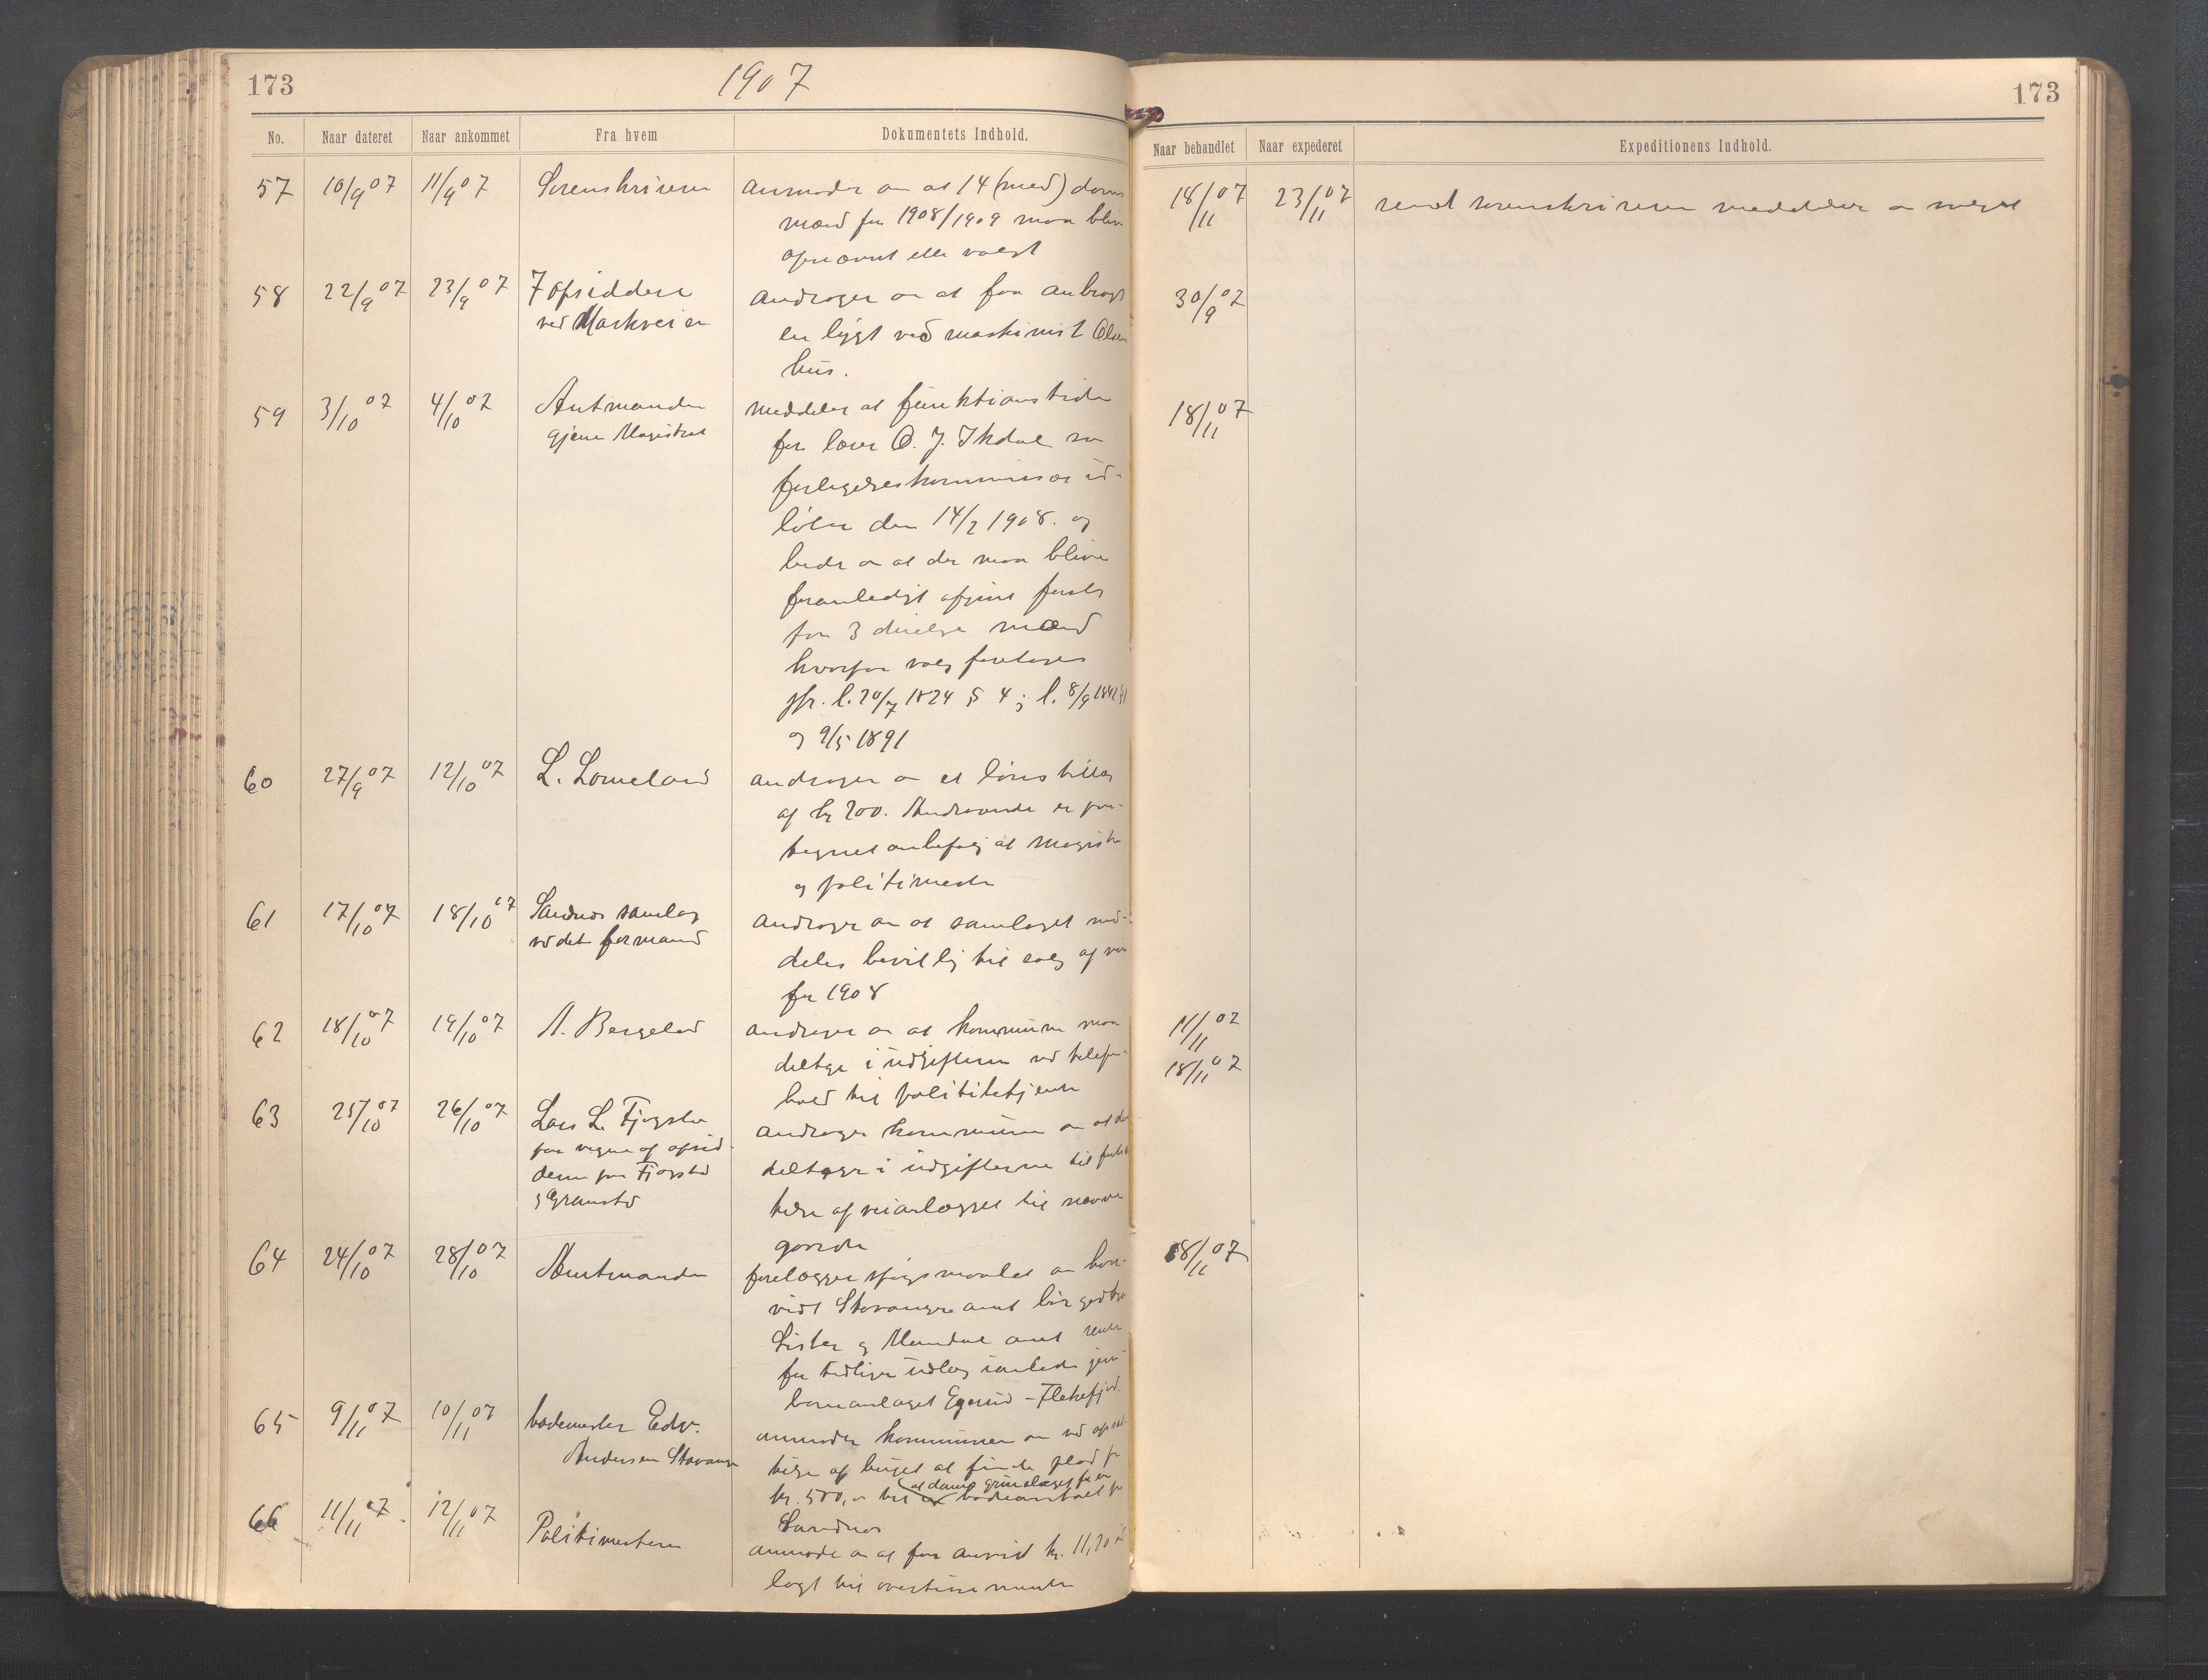 173
1907
No.
Naar dateret
Naar ankommet
Fra hvem
Dokumentets Indhold.
57 10/9 07 11/9 07 Sorenskriveren
anmoder om at 14 (med) doms
mænd for 1908/1909 maa blive
opnævnt eller valgt
58 22/9 07 23/9 07 7 opsiddere
ved
androger om at faa anbragt
en lygt ved maskinist Olsens
hus.
59 3/10 07 4/10 07 Amtmanden
gjenn Magistrat
meddeler at funktionstiden
for O. J. Ihdal som
forligelseskommissær ud-
løber den 14/2 1908. og
beder om at der maa blive
foranlediget
for 3 duelige mænd
hvorfor valg foretages
jfr. l. 20/7 1824 § 4; l. 8/9 1842
og 9/5 1891
60 27/9 07 12/10 07 L. Lomeland
androger om et lønstillæg
af kr 200. Andragende er paa-
tegnet anbefalg af magistr
og politimester
61 17/10 07 18/10 07 Sandnes samlag
ved dets formand
androger om at samlaget med-
deles bevillg til salg af vin
for 1908
62 18/10 07 19/10 07 A. Bergeland
androger om at kommunen maa
deltage i udgifterne ved telefon-
hold til politibetjenten
63 25/10 07 26/10 07 Lars L. Fjogstad
paa vegne af opsid-
derne paa Fjogstad
og Gramstad
androger kommunen om at den
deltager i udgifterne til
af veianlægget til nævnte
gaarde
64 24/10 07 28/10 07 Amtmanden
forelægger spørgsmaalet om hor-
vidt Stavanger amt bør godtgjøre
Lister og Mandal amt renter
for tidligere udlæg jern-
baneanlæget Egersund – Flekkefjord.
65 9/11 07 10/11 07 bademester Edv.
Andersen Stavanger
anmoder kommunen om ved opsæt-
telse af budget at finde plads for
at danne grundlaget for en
kr. 500, til badeanstalt for
Sandnes
66 11/11 07 12/11 07 Politimesteren
anmoder om at faa anvist kr. 11,20 ud-
lagt til
173
Naar behandlet
Naar expederet
Expeditionens Indhold.
18/11 07 23/11 07 sendt sorenskriveren meddelelse om
30/9 07
18/11 07
11/11 07
18/11 07
18/11 07